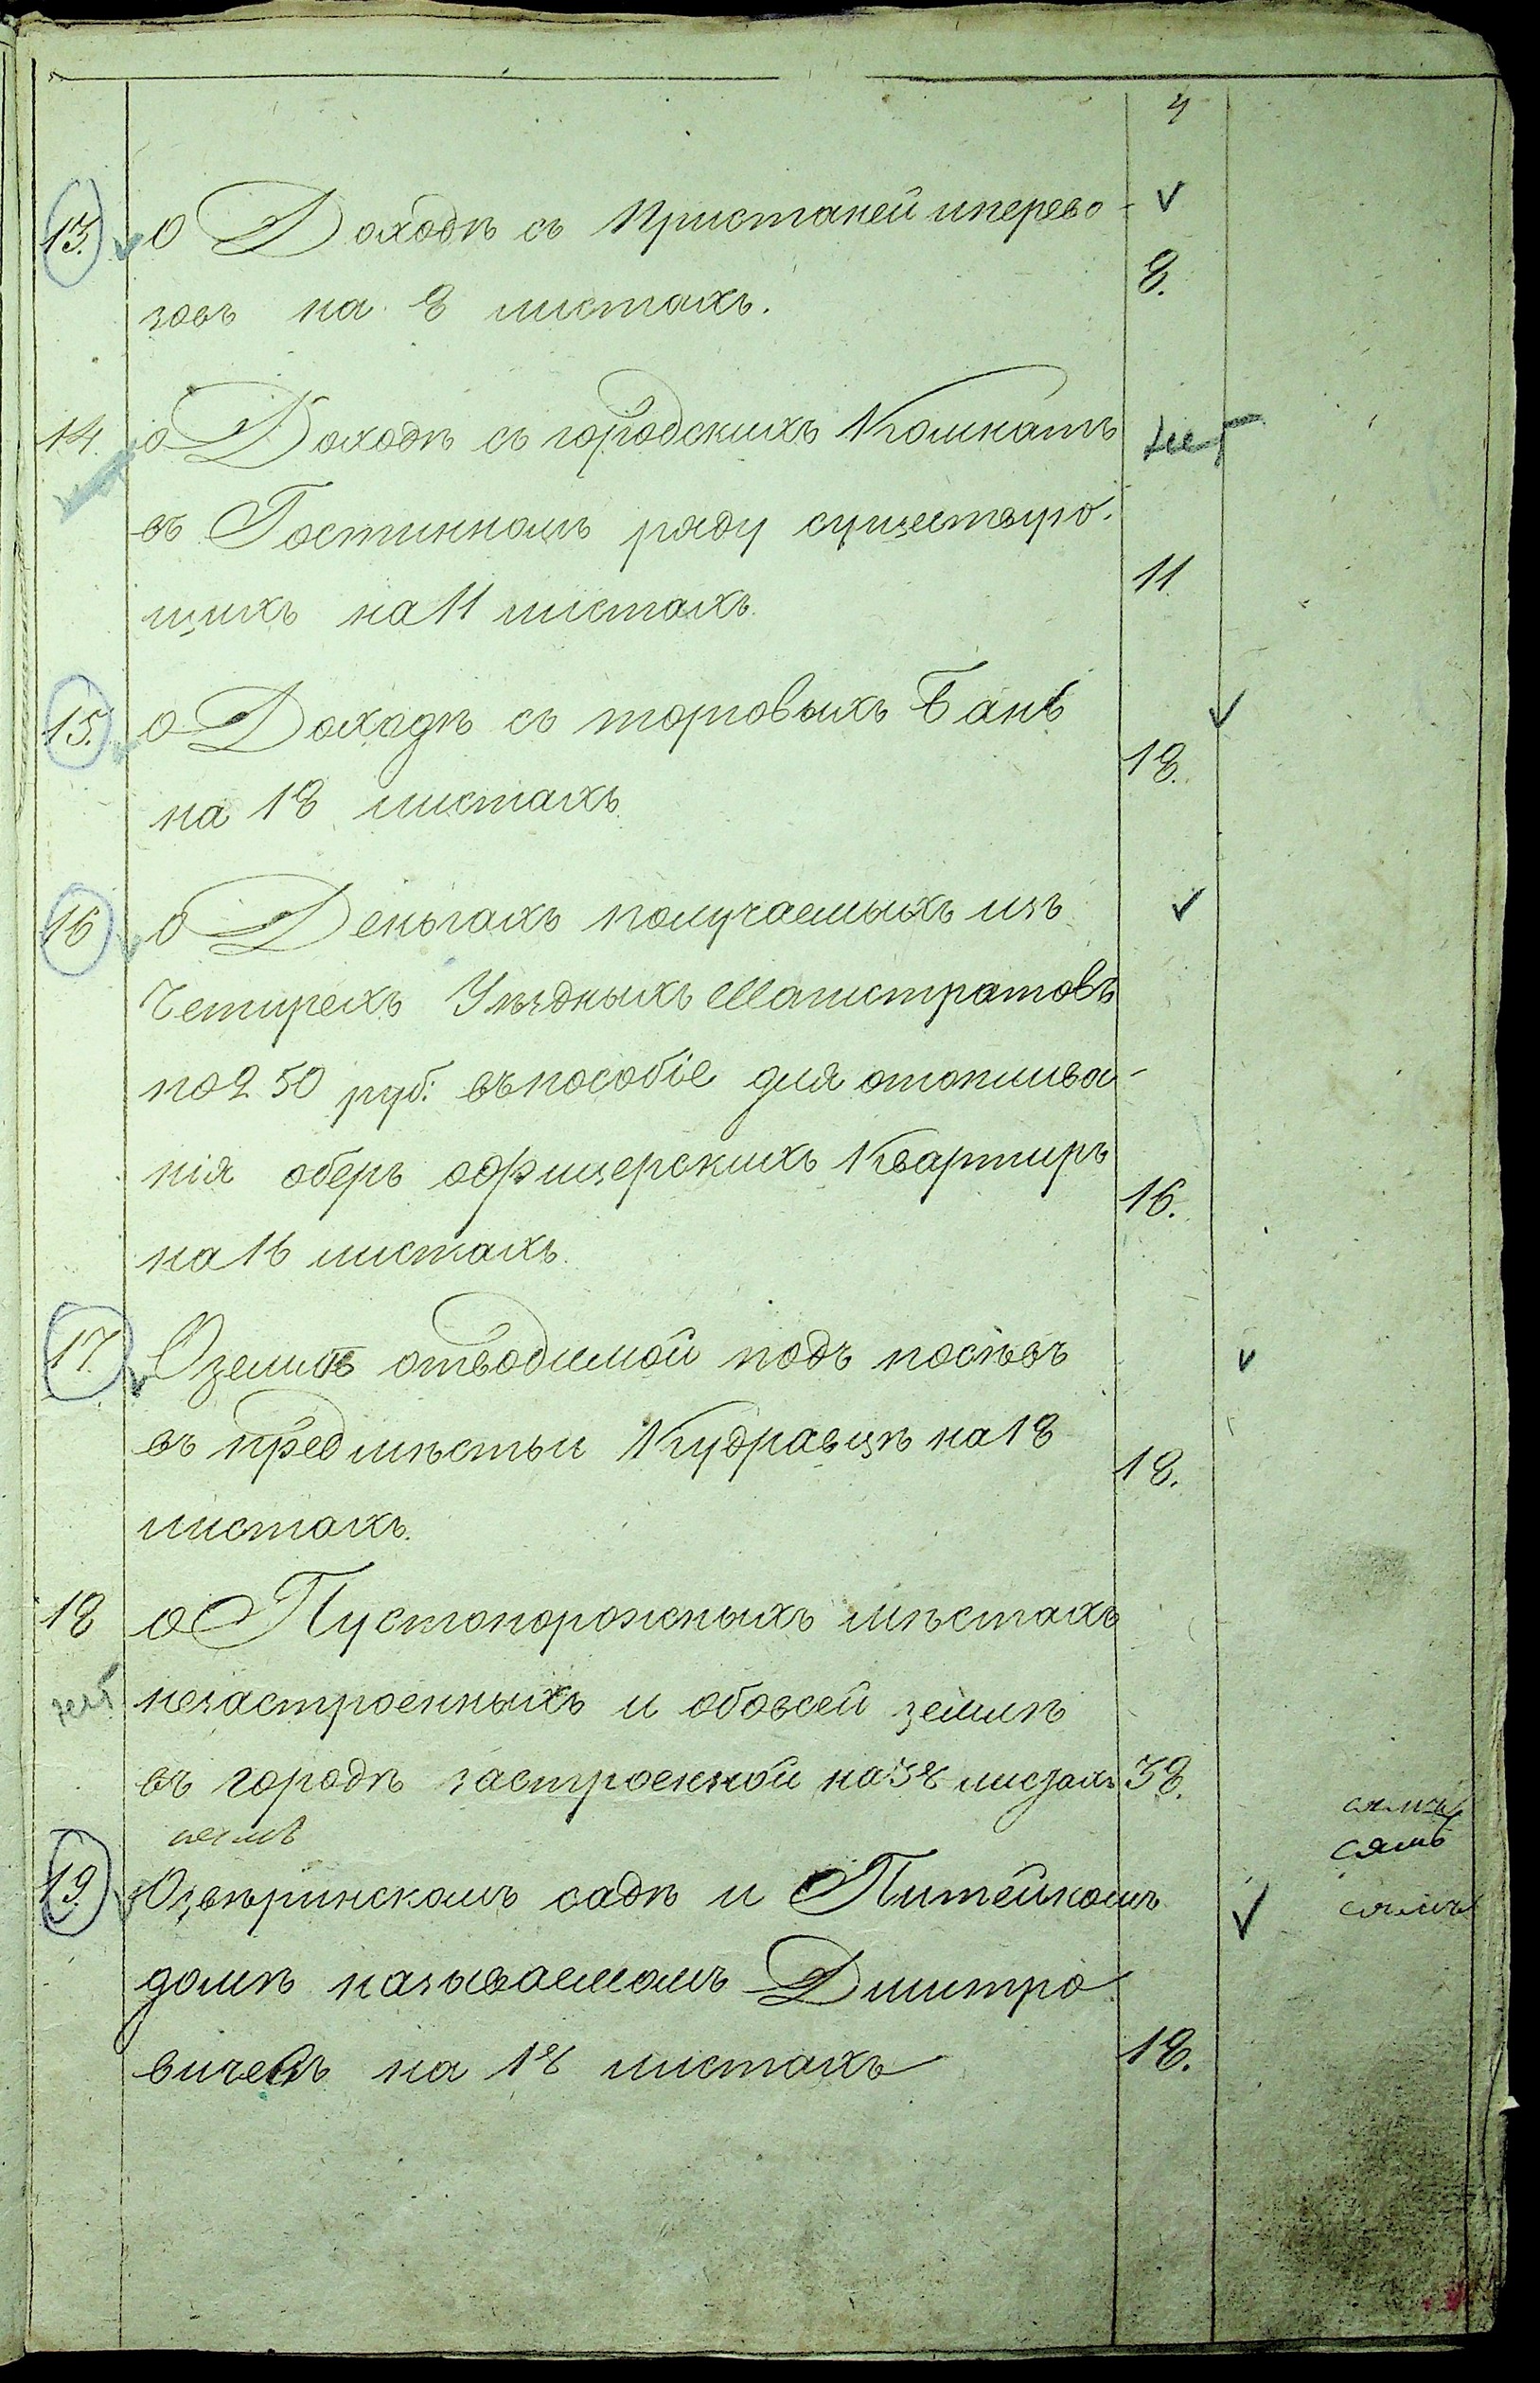 4
13. о Доходѣ съ Пристаней иперево-
зовъ на 8 листахъ. 8.
14. о Доходѣ съ городскихъ Комнатъ нет
въ Гостинномъ ряду существую-
щихъ на 11 листахъ. 11.
15. о Доходѣ съ торговыхъ Бань
на 18 листахъ. 18.
16 о Деньгахъ получаемыхъ изъ
Четирехъ Уѣздныхъ Магистратовъ
по 250 руб: въпособіе для отоплива-
нія оберъ офицерскихъ Квартиръ
на 16 листахъ. 16.
17. Оземлѣ отводимой подъ посѣвъ
въ предмѣстьи Кудравцѣ на 18 18.
листахъ.
18 о Пустопорожныхъ мѣстахъ
нет незастроенныхъ и обовсей землѣ
въ городѣ застроенной на 38 листахъ 38.
19. Озвѣринскомъ садѣ и Питейномъ
домѣ называемомъ Дмитро
вичемъ на 18 листахъ 18.